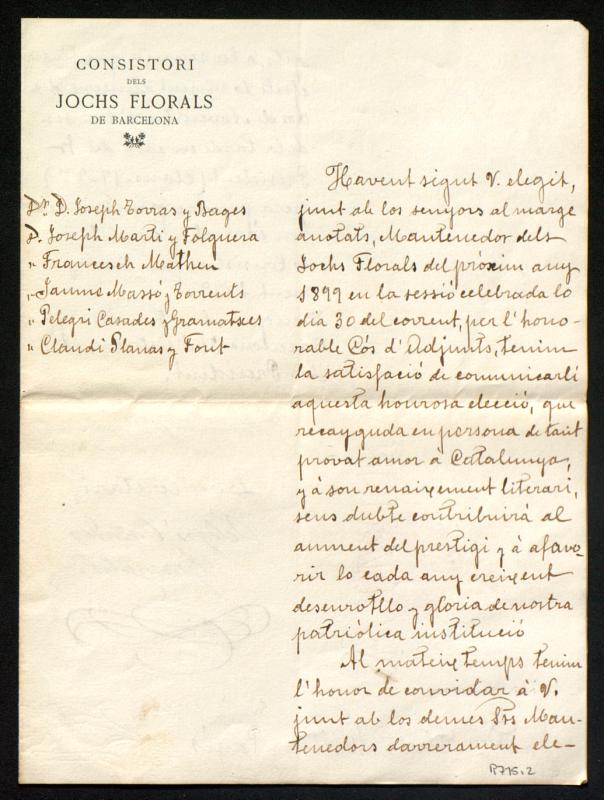 CONSISTORI
DELS
JOCHS FLORALS
DE BARCELONA
Dr. D. Joseph Torras y Bages
D. Joseph Martí y Folguera
" Francesch Matheu
" Jaume Massó y Torrents
" Pelegrí Casades y Gramatxes
" Claudi Planas y Font
Havent sigut V. elegit,
junt ab los senyors al marge
anotats, Mantenedor dels
Jochs Florals del próxim any
1899 en la sessió celebrada lo
dia 30 del corrent, per l'hono-
rable Cós d'Adjunts, tenim
la satisfacció de comunicarli
aquesta honrosa elecció, que
recayguda en persona de tant
provat amor á Catalunya,
y á son renaixement literari,
sens dubte contribuirá al
aument del prestigi y á afavo-
rir lo cada any creixent
desenrotllo y gloria de nostra
patriótica institució
Al mateix temps tenim
l'honor de convidar á V.
junt ab los demes Srs Man-
tenedors darrerament ele-
R715.2